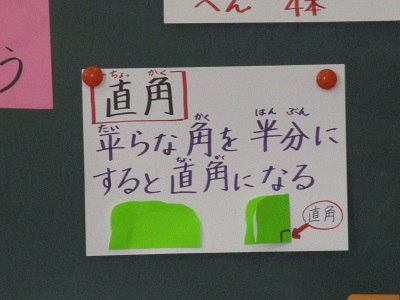 へん 4本
う
ちょっ かく
直角
たい かく はん ぶん
平らな角を半分に
ちょっ かく
すると直角になる
直角